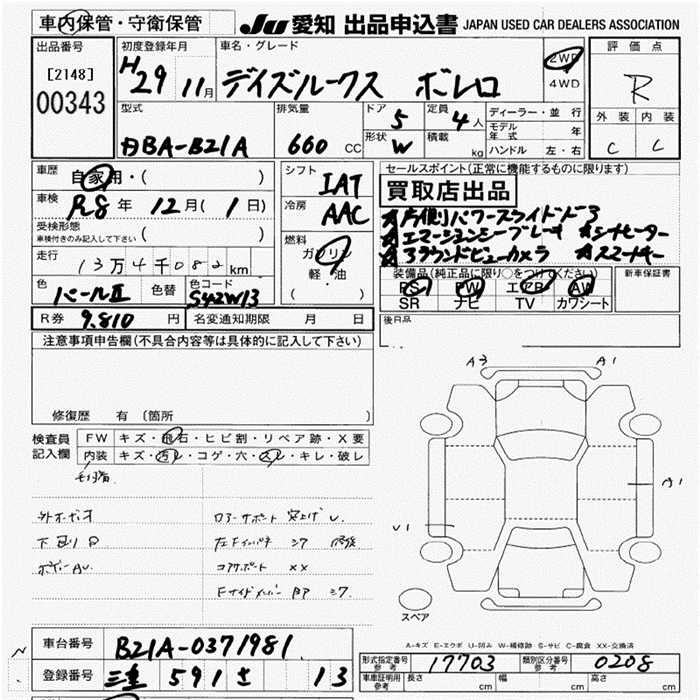 車内保管・守衛保管
JU 愛知 出品申込書 JAPAN USED CAR DEALERS ASSOCIATION
出品番号
[2148]
00343
初度登録年月
H29 11月
車名・グレード
デイズルークス ボレロ
2WD
4WD
評価点
R
外装 内装
C C
型式
DBA-B21A
排気量
660 CC
ドア 5
形状 W
定員 4人
積載 kg
ディーラー・並行
モデル年式 年
ハンドル 左・右
車歴 自家用・( )
車検 R8年 12月(1日)
受検形態
車検付きのみ記入して下さい ( )
走行 13万4千082km
色 パールⅡ 色替 色コード S42W13
シフト IAT
冷房 AAC
燃料
ガソリン
軽・油
( ・ )
セールスポイント(正常に機能するものに限ります)
買取店出品
★片側パワースライドドア
★エマージェンシーブレーキ ★シートヒーター
★アラウンドビューカメラ ★スマートキー
装備品(純正品に限り○をつけてください)
PS PW エアB AW
SR ナビ TV カワシート
新車保証書
後日品
R券 9,810円 名変通知期限 月 日
注意事項申告欄(不具合内容等は具体的に記入して下さい)
修復歴 有 (箇所
検査員記入欄
FW キズ・飛石・ヒビ割・リペア跡・X要
内装 キズ・汚レ・コゲ・穴・スレ・キレ・破レ
A3 A1
A1
U1
スペア
下回りP
コアサポート XX
A-キズ E-エクボ U-凹み W-補修跡 S-サビ C-腐食 XX-交換済
車台番号 B21A-0371981
登録番号 三重 591 13
形式指定番号 参考 17703 類別区分番号 参考 0208
車庫証明用 参考 長さ cm 幅 cm 高さ cm